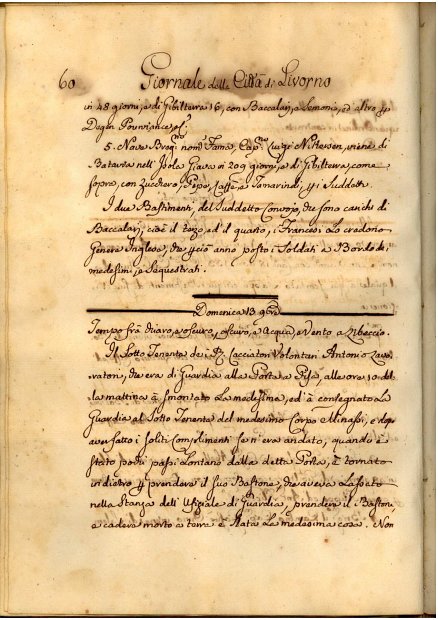 60 Giornale della Città di Livorno
in 48 giorni, e di Gibilterra 16, con Baccalari, e Semonia, ed altro, p
Degen
5. Nave Breg.ne nom.ta Fama, Cap.no Luigi Nistersen, viene di
Batavia nell' Isola Giava in 209 giorni, e di Gibilterra come
sopra, con Zucchero, Pepe, Caffè, e Tamarindi, p i Suddetti.
I due Bastimenti, del Suddetto Convojo, che sono carichi di
Baccalari, cioè il terzo, ed il quarto, i Francesi Lo credono
Genere Inglese, che perciò anno posto i Soldati a Bordo de
medesimi, e Sequestrati.
Domenica 13 9bre
Tempo frà chiaro, e oscuro, oscuro, e Acqua, e Vento a Libeccio.
Il Sotto Tenente dei Cacciatori Volontari Antonio
che era di Guardia alla Porta a Pisa, alle ore 10 del
la mattina à smontato La medesima, ed à consegnato La
Guardia al Sotto Tenente del medesimo Corpo Minassi, e dop
aver fatto i soliti Complimenti se n' era andato, quando è
stato pochi passi Lontano dalla detta Porta, è tornato
indietro p prendere il suo Bastone, che aveva Lassato
nella Stanza dell' Uffiziale di Guardia, prendere il Baston
e cadere morto a terra è stata La medesima cosa. Non